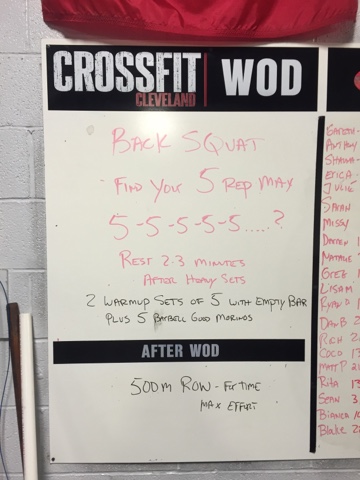 CROSSFIT WOD
CLEVELAND
BACK SQUAT
FIND YOUR 5 REP MAX
5-5-5-5-5.....?
REST 2-3 MINUTES
AFTER HEAVY SETS
2 WARMUP SETS OF 5 WITH EMPTY BAR
PLUS 5 BARBELL GOOD MORNINGS
AFTER WOD
500M ROW - FOR TIME
MAX EFFORT
GARETH
ANTHONY
SHAWNA
ERICA
JULIE
SARAH
MISSY
DARREN 1
NATALIE
GREG
LISAM
RYAN D
DAN B 2
RICH 2
COCO 13
MATT P 2
Rita 13
SEAN 3
Bianca 10
Blake 20